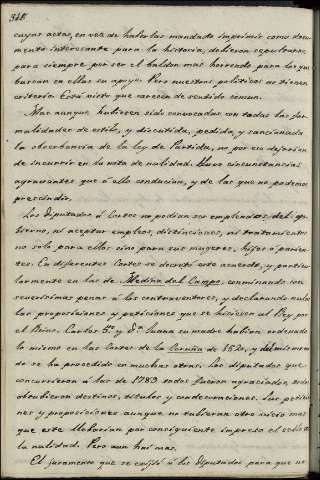 348.
cuyas actas, en vez de haberlas mandado imprimir como docu-
mento interesante para la historia, debieron sepultarse
para siempre por ser el baldon mas horrendo para los que
buscan en ellas su apoyo. Pero nuestros politicos no tienen
criterio. Está visto que carecen de sentido comun.
Mas aunque hubiesen sido convocadas con todas las for-
malidades de estilo, y discutida, pedida, y sancionada
la observancia de la ley de Partida, no por eso dejarian
de incurrir en la nota de nulidad. Hubo circunstancias
agravantes que á ello conducian, y de las que no podemos
prescindir.
Los Diputados á Cortes no podian ser empleados del go-
bierno, ni aceptar empleos, distinciones, ni tratamientos
no solo para ellos sino para sus mugeres, hijos ó parien-
tes. En diferentes Cortes se decretó este acuerdo, y particu-
larmente en las de Medina del Campo, conminando con
severisimas penas á los contraventores, y declarando nulas
las proposiciones y peticiones que se hiciesen al Rey por
el Reino. Carlos 5º y Dª Juana su madre habian ordenado
lo mismo en las Cortes de la Coruña de 1520, y del mismo mo-
do se ha procedido en muchas otras. Los diputados que
concurrieron á las de 1789 todos fueron agraciados, todos
obtuvieron destinos, titulos y condecoraciones. Sus peticio-
nes y proposiciones aunque no tubieran otro vicio mas
que este llebarian por consiguiente impreso el sello de
la nulidad. Pero aun hai mas.
El juramento que se exijió á los Diputados para que no